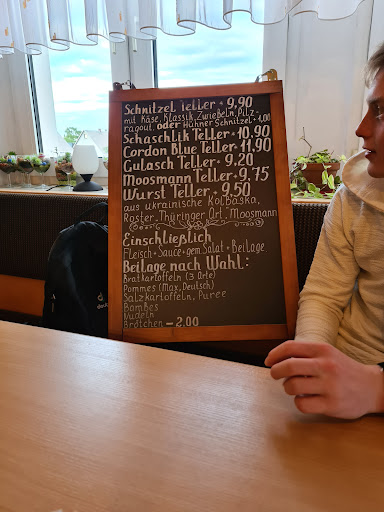 Schnitzel Teller • 9,90
mit Käse, Klassik, Zwiebeln, Pilz-
ragout, oder Hühner Schnitzel + 1,00
Schaschlik Teller • 10.90
Cordon Blue Teller • 11.90
Gulasch Teller • 9.20
Moosmann Teller • 9.75
Wurst Teller • 9.50
aus ukrainische Kolbaska,
Roster Thüringer Art, Moosmann
Einschließlich
Fleisch • Sauce • gem Salat • Beilage
Beilage nach Wahl:
Bratkartoffeln (3 Arte)
Pommes (Max, Deutsch)
Salzkartoffeln, Püree
Bambes
Nudeln
Brötchen - 2.00